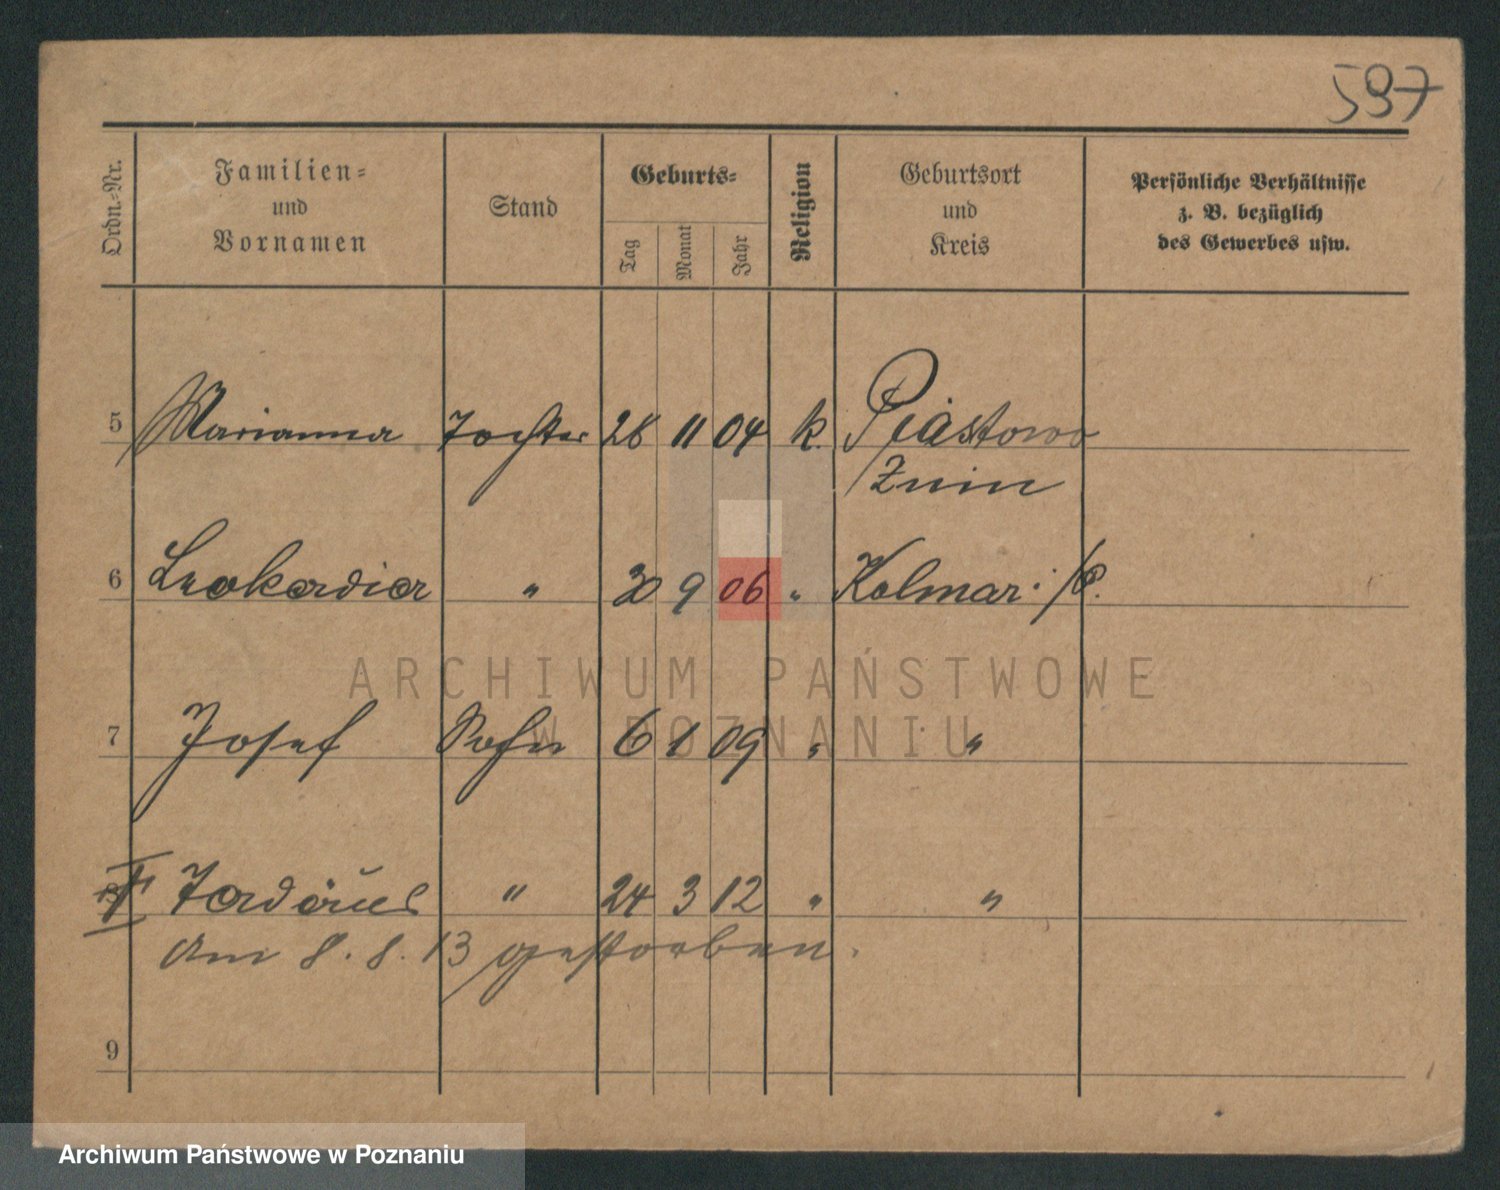 597
Ordn.-Nr.
Familien-
und
Vornamen
Stand
Geburts-
Tag
Monat
Jahr
Religion
Geburtsort
und
Kreis
Persönliche Verhältnisse
z. B. bezüglich
des Gewerbes usw.
5 Marianna Tochter 28 11 04 k. Piastowo
Znin
6 Leokardia " 30 9 06 " Kolmar i/P.
ARCHIWUM PAŃSTWOWE
W POZNANIU
7 Josef Sohn 6 1 09 " "
Tadäus " 24 3 12 " "
Am 8.8.13 gestorben.
9
Archiwum Państwowe w Poznaniu